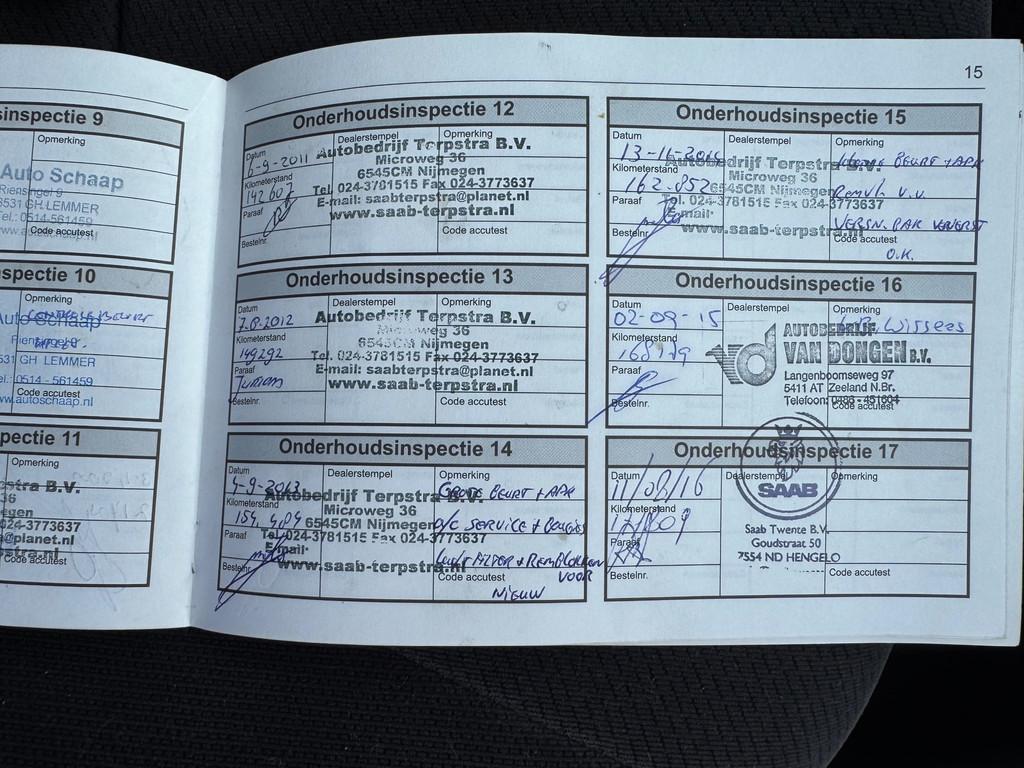 15
sinspectie 9
Opmerking
Auto Schaap
Riensingel 9
8531 GH LEMMER
Tel.: 0514-561459
www.autoschaap.nl
Code accutest
spectie 10
Opmerking
Auto Schaap
Riensingel 9
531 GH LEMMER
el.: 0514 - 561459
w.autoschaap.nl
Code accutest
pectie 11
Opmerking
stra B.V.
36
egen
024-3773637
@planet.nl
stra.nl
Code accutest
Onderhoudsinspectie 12
Datum
Dealerstempel
Opmerking
6-9-2011
Autobedrijf Terpstra B.V.
Microweg 36
Kilometerstand
6545CM Nijmegen
142 007
Tel. 024-3781515 Fax 024-3773637
Paraaf
E-mail: saabterpstra@planet.nl
www.saab-terpstra.nl
Bestelnr.
Code accutest
Onderhoudsinspectie 13
Datum
Dealerstempel
Opmerking
7-8-2012
Autobedrijf Terpstra B.V.
Microweg 36
Kilometerstand
6545CM Nijmegen
149292
Tel. 024-3781515 Fax 024-3773637
Paraaf
E-mail: saabterpstra@planet.nl
www.saab-terpstra.nl
Bestelnr.
Code accutest
Onderhoudsinspectie 14
Datum
Dealerstempel
Opmerking
4-9-2013
Autobedrijf Terpstra B.V.
GROTE BEURT + APK
Microweg 36
Kilometerstand
154.484
6545CM Nijmegen
a/c SERVICE + Bougies
Paraaf
Tel. 024-3781515 Fax 024-3773637
E-mail:
LuchtFILTER + REMBLOKKEN
www.saab-terpstra.nl
VOOR
Bestelnr.
Code accutest
NIEUW
Onderhoudsinspectie 15
Datum
Dealerstempel
Opmerking
13-11-2014
Autobedrijf Terpstra B.V.
BEURT + APK
Microweg 36
Kilometerstand
162.852
6545CM Nijmegen
V.V.
Tel. 024-3781515 Fax 024-3773637
Paraaf
E-mail:
VERSN. BAK VERVERST
www.saab-terpstra.nl
Bestelnr.
Code accutest
O.K.
Onderhoudsinspectie 16
Datum
Dealerstempel
Opmerking
02-09-15
AUTOBEDRIJF
Kilometerstand
VAN DONGEN B.V.
168179
Paraaf
Langenboomseweg 97
5411 AT Zeeland N.Br.
Telefoon: 0486 - 451604
Bestelnr.
Code accutest
Onderhoudsinspectie 17
Datum
Dealerstempel
Opmerking
11/02/16
SAAB
Kilometerstand
Saab Twente B.V.
Paraaf
Goudstraat 50
7554 ND HENGELO
Bestelnr.
Code accutest